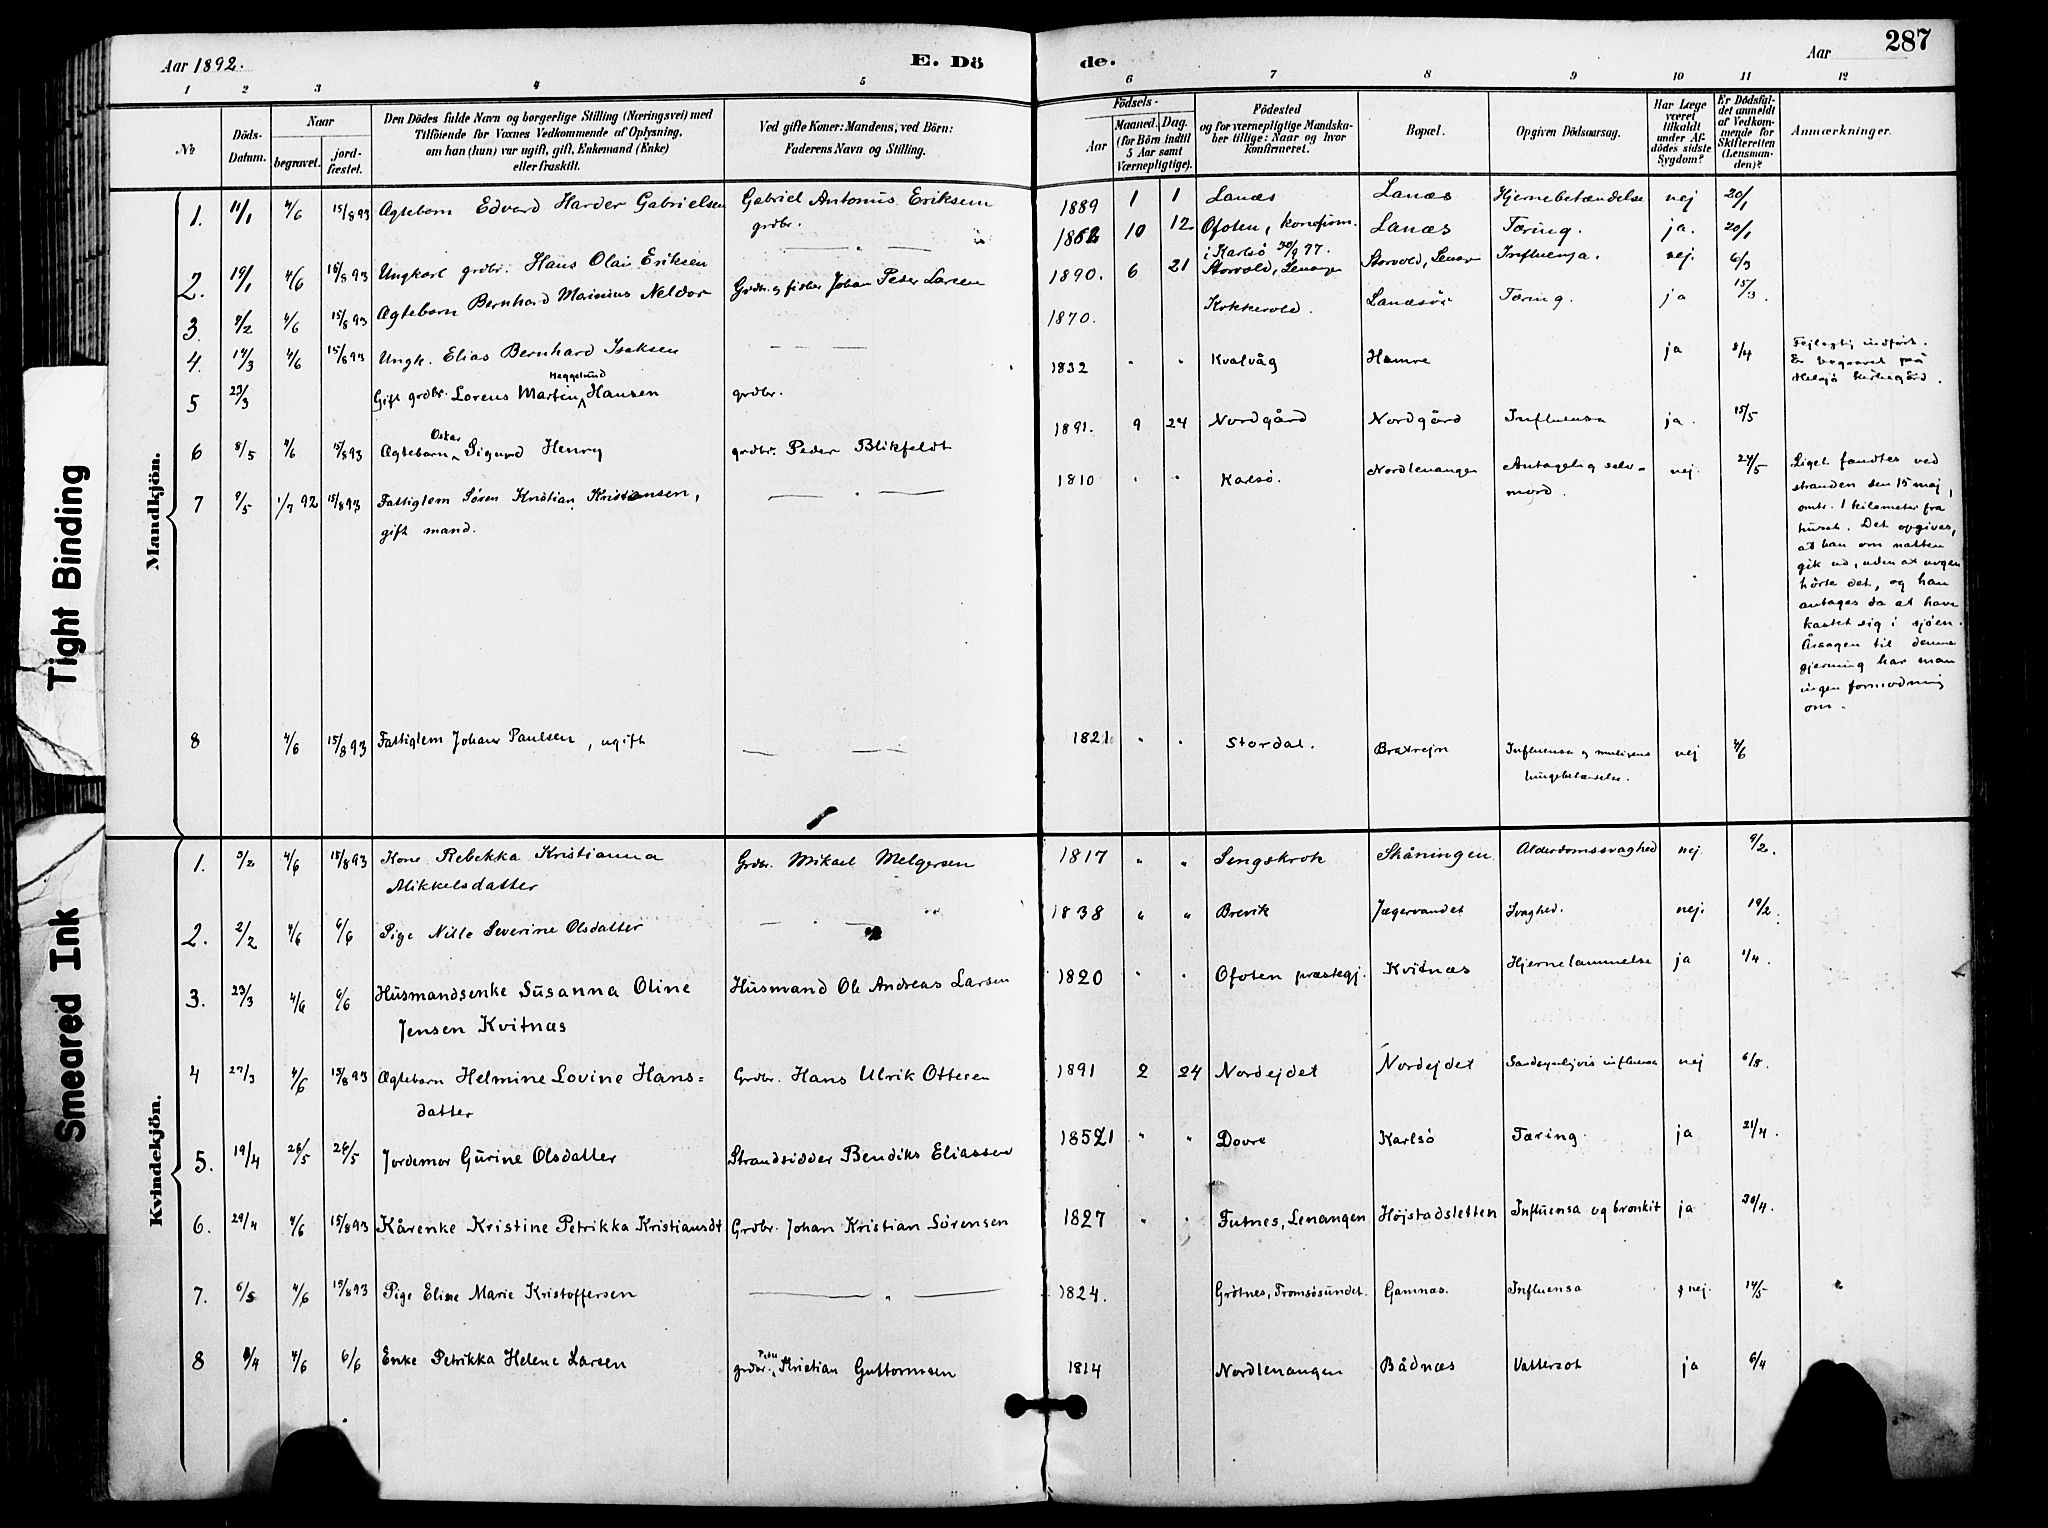 Aar 1892.
E. Dö
de.
Aar
287
1 2 3 4 5 6 7 8 9 10 11 12
No
Döds-
Datum.
Naar
begravet.
jord-
fæstet.
Den Dödes fulde Navn og borgerlige Stilling (Næringsvei) med
Tilföiende for Voxnes Vedkommende af Oplysning,
om han (hun) var ugift, gift, Enkemand (Enke)
eller fraskilt.
Ved gifte Koner: Mandens, ved Börn:
Faderens Navn og Stilling.
Födsels-
Aar
Maaned. Dag.
(for Börn indtil
5 Aar samt
Værnepligtige).
Födested
og for værnepligtige Mandska-
ber tillige: Naar og hvor
konfirmeret.
Bopæl.
Opgiven Dödsaarsag.
Har Læge
været
tilkaldt
under Af-
dödes sidste
Sygdom?
Er Dödsfal-
det anmeldt
af Vedkom-
mende for
Skifteretten
(Lensman-
den)?
Anmærkninger.
Mandkjön.
1. 11/1 4/6 15/8 93 Ægtebarn Edvard Harder Gabrielsen Gabriel Antonius Eriksen 1889 1 1 Lanæs Lanæs Hjernebetændelse nej 20/1
grdbr.
2. 19/1 4/6 15/8 93 Ungkarl grdbr. Hans Olai Eriksen 1862 10 12 Ofoten, konfirm. Lanæs Tæring. ja. 20/1
i Karlsö 30/9 77.
3. 9/2 4/6 15/8 93 Ægtebarn Bernhard Mainius Neldor Grdbr. og fisker Johan Peter Larsen 1890. 6 21 Storvold, Lenangen Storvold, Lenangen Influensa. nej. 6/3
4. 14/3 4/6 15/8 93 Ungk. Elias Bernhard Isaksen 1870. Kokkevold. Lanæsör Tæring. ja 15/3.
5 23/3 Gift grdbr. Lorens Martin Heggelund Hansen grdbr. 1832 " " Kvalvåg Hamre ja 8/4
Fejlagtig indfört.
Er begravet på
Helgö kirkegård.
6 8/5 4/6 15/8 93 Ægtebarn Oskar Sigurd Henry grdbr. Peder Blikfeldt 1891. 9 24 Nordgård Nordgård Influensa ja. 15/5
7 9/5 1/7 92 15/8 93 Fattiglem Sören Kristian Kristiansen, 1810 " " Karlsö. Nordlenangen Antagelig selv- nej 24/5
gift mand. mord.
Liget fandtes ved
stranden den 15 maj,
omtr. 1 kilometer fra
huset. Det opgives,
at han om natten
gik ud, uden at nogen
hörte det, og han
antages da at have
kastet sig i sjöen.
Årsagen til denne
gjerning har man
ingen formodning
om.
8 4/6 15/8 93 Fattiglem Johan Paulsen, ugift 1821 " " Stordal. Bratrejn Influensa og muligens nej 4/6
lungebetændelse.
Kvindekjön.
1. 3/2 4/6 15/8 93 Kone Rebekka Kristianna Grdbr. Mikael Melgersen 1817 " " Lengskrok Skåningen Alderdomssvaghed nej 9/2.
Mikkelsdatter
2. 2/2 4/6 6/6 Pige Nille Severine Olsdatter 1838 " " Brevik Jægervandet Svaghed. nej. 19/2.
3. 23/3 4/6 6/6 Husmandsenke Susanna Oline Husmand Ole Andreas Larsen 1820 " " Ofoten præstegj. Kvitnæs Hjernelammelse ja 1/4.
Jensen Kvitnæs
4 27/3 4/6 15/8 93 Ægtebarn Helmine Lovine Hans= Grdbr. Hans Ulrik Ottesen 1891 2 24 Nordejdet Nordejdet Sandsynligvis influensa nej 6/8.
datter
5. 19/4 26/5 26/5 Jordemor Gurine Olsdatter Strandsidder Bendiks Eliassen 1851 " " Dovre Karlsö Tæring. ja 21/4.
6. 29/4 4/6 15/8 93 Kårenke Kristine Petrikka Kristiansdt Grdbr. Johan Kristian Sörensen 1827 " " Futnes, Lenangen Höjstadsletten Influensa og bronkit ja 30/4.
7. 6/5 4/6 15/8 93 Pige Eline Marie Kristoffersen 1824. Grötnes, Tromsösundet. Gamnæs. Influensa nej. 14/5
8 4/6 6/6 Enke Petrikka Helene Larsen grdbr. Peder Kristian Guttormsen 1814 Nordlenangen Bådnæs Vattersot ja 6/4
Tight Binding
Smeared Ink